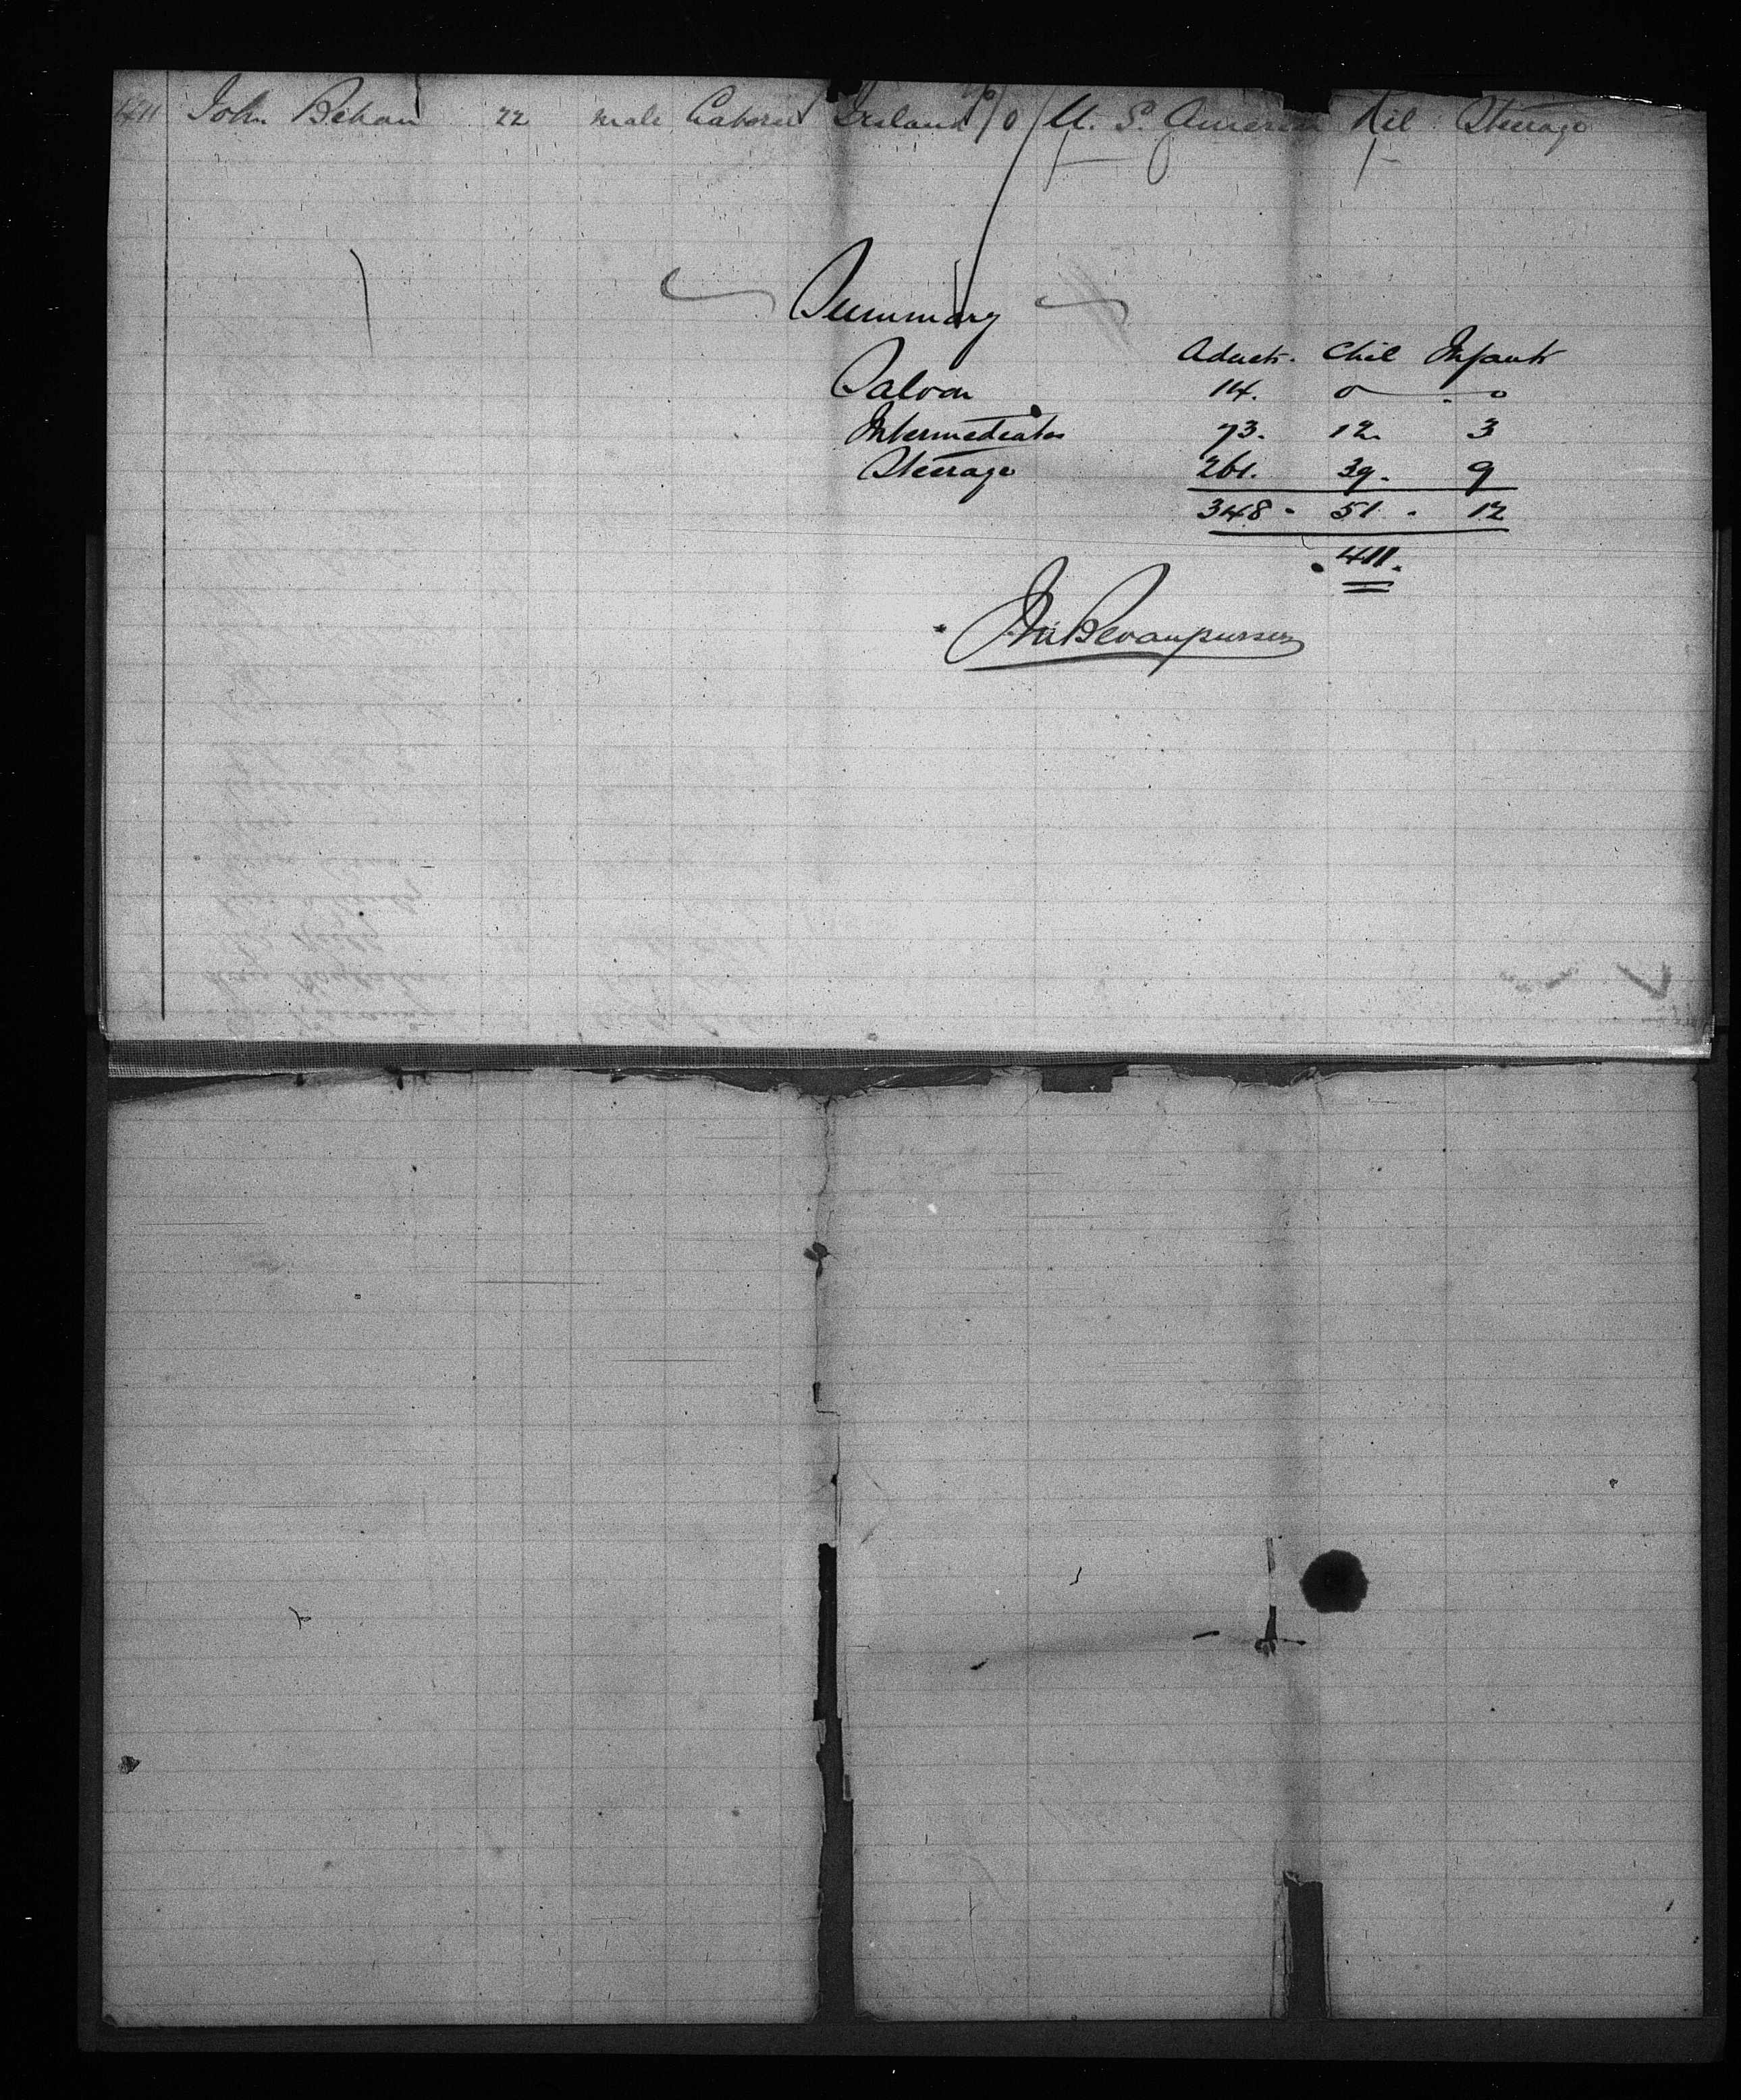 411 John Behan 22 male Laborer Ireland 0 U. S. America Nil Steerage
Summary
Adults. Chil Infants
Saloon 14. 0 0
Intermediates 73. 12. 3
Steerage 261. 39. 9
348 - 51 - 12
411.
Bevan purser